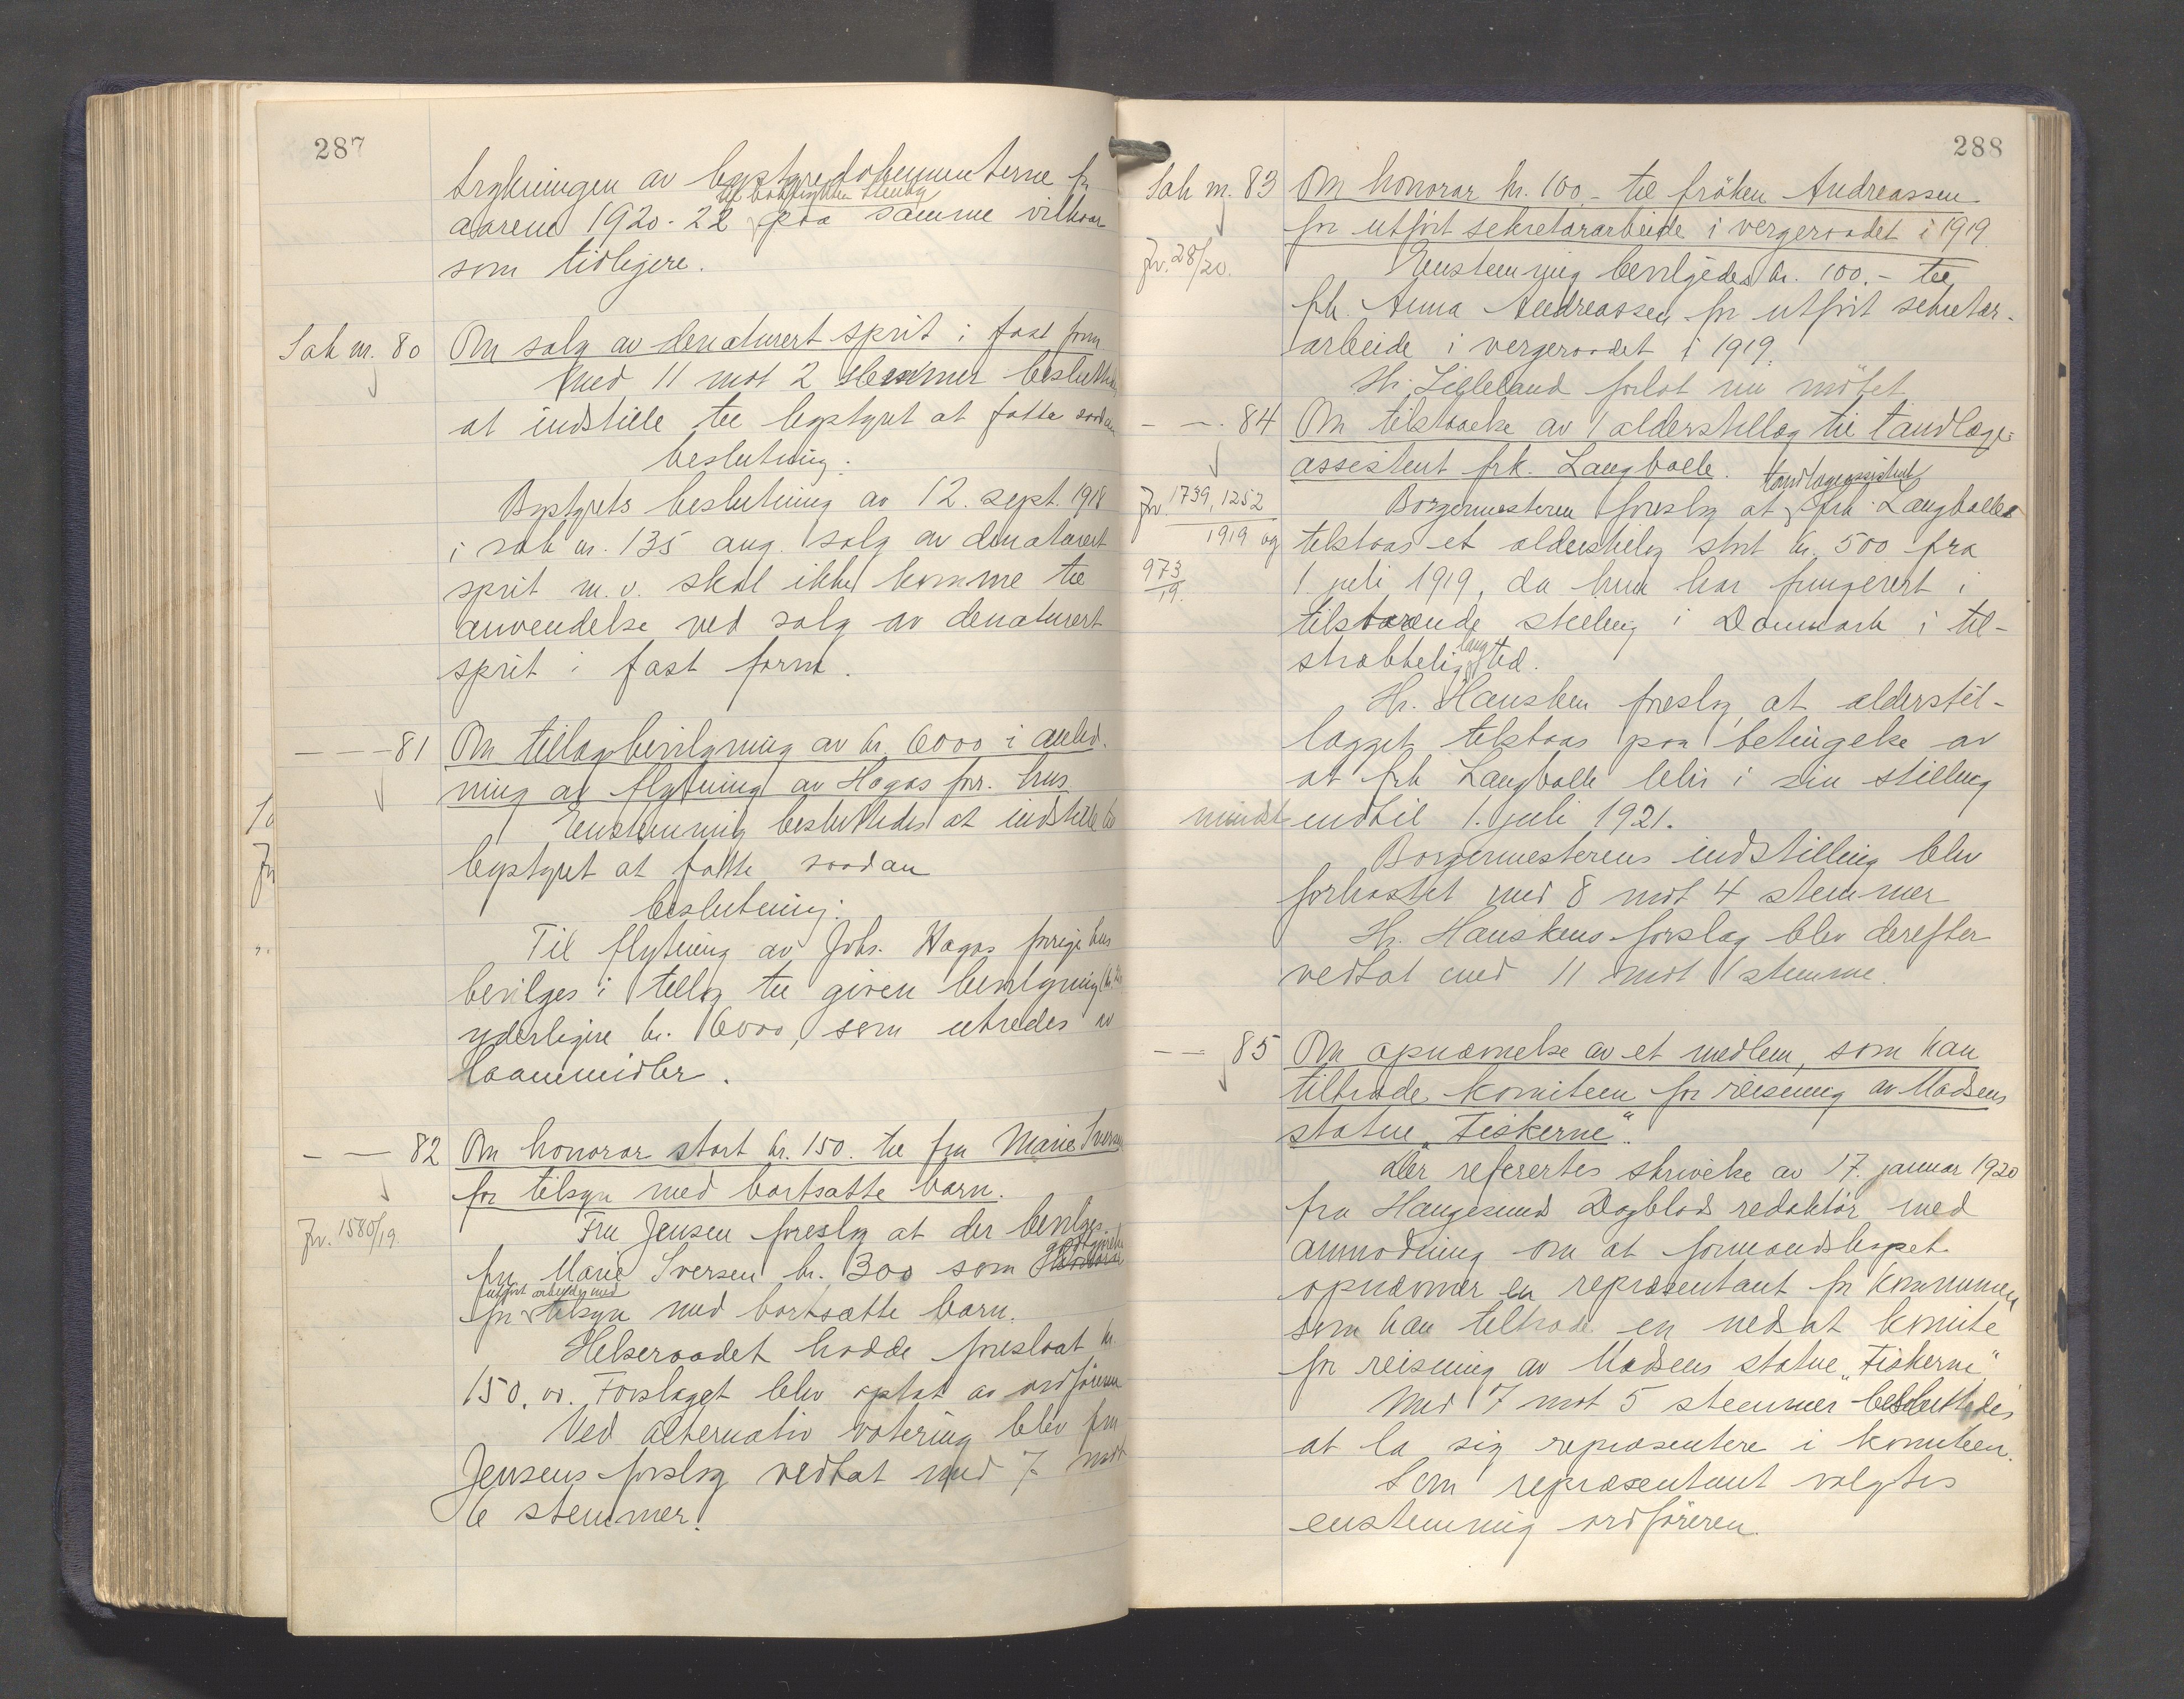 287
trykningen av bystyredokumenterne for
til boktrykker
aarene 1920-22 paa samme vilkaar
som tidligere.
Sak nr. 80 Om salg av denaturert sprit i fast form
Med 11 mot 2 stemmer besluttedes
at indstille til bystyret at fatte saadan
beslutning:
Bystyrets beslutning av 12. sept. 1918
i sak nr. 135 ang. salg av denaturert
sprit m. v. skal ikke komme til
anvendelse ved salg av denaturert
sprit i fast form.
— — 81 Om tillægsbevilgning av kr. 6000 i anled-
ning av flytning av Hagas forr. hus
Enstemmig besluttedes at indstille til
bystyret at fatte saadan
beslutning:
Til flytning av Johs. Hagas forrige hus
bevilges i tillæg til given bevilgning
yderligere kr. 6000, som utredes av
laanemidler.
— — 82 Om honorar stort kr. 150. til fru Marie Iversen
for tilsyn med bortsatte barn.
Jnr. 1580/19.
Fru Jensen foreslog at der bevilges
godtgjørelse
fru Marie Iversen kr. 300 som honorar
utført arbeide med
for tilsyn med bortsatte barn.
Helseraadet hadde foreslaat kr.
150.00. Forslaget blev optat av ordføreren
Ved alternativ votering blev fru
Jensens forslag vedtat med 7 mot
6 stemmer.
288
Sak nr. 83 Om honorar kr. 100.- til frøken Andreassen
for utført sekretærarbeide i vergeraadet i 1919.
Jnr. 28/20.
Enstemmig bevilgedes kr. 100.- til
frk. Anna Andreassen for utført sekretær-
arbeide i vergeraadet i 1919.
Hr. Lilleland forlot nu møtet.
— — 84 Om tilstaaelse av 1 alderstillæg til tandlæge-
assistent frk. Langballe.
tandlægeassistent
Jnr. 1739, 1252
1919 og
973
19.
Borgermesteren foreslog at frk. Langballe
tilstaaes et alderstillæg stort kr. 500 fra
1. juli 1919, da hun har fungert i
tilsvarende stilling i Danmark i til-
lang
strækkelig tid.
Hr. Hansken foreslog at alderstil-
lægget tilstaaes paa betingelse av
at frk Langballe blir i sin stilling
mindst indtil 1. juli 1921.
Borgermesterens indstilling blev
forkastet med 8 mot 4 stemmer
Hr. Hanskens forslag blev derefter
vedtat med 11 mot 1 stemme.
— — 85 Om opnævnelse av et medlem, som kan
tiltræde komiteen for reisning av Madsens
statue „Fiskerne“.
Der refertes skrivelse av 17. januar 1920
fra Haugesunds Dagblads redaktør med
anmodning om at formandskapet
opnævner en repræsentant for kommunen
som kan tiltræde en nedsat komite
for reisning av Madsens statue „Fiskerne“
Med 7 mot 5 stemmer besluttedes
at la sig repræsentere i komiteen.
Som repræsentant valgtes
enstemmig ordføreren.